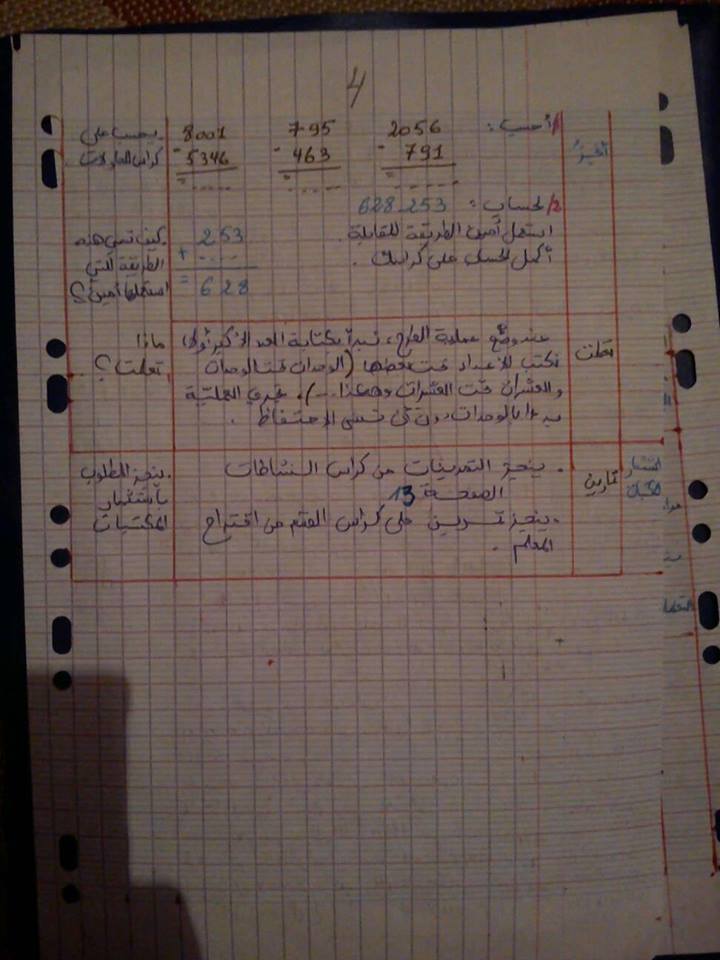 4
أنجز
1/ أحسب:
2056 795 8001
- 791 - 463 - 5346
= ..... = .... = .....
يحسب على
كراس المحاولات
2/ لحساب: 628-253
استعمل أمين الطريقة المقابلة.
أكمل الحساب على كراسك.
253
+ ....
= 628
.كيف تسمى هذه
الطريقة التي
استعملها أمين؟
تعلمت
عند وضع عملية الطرح، نبدأ بكتابة العدد الأكبر أولا
نكتب الأعداد تحت بعضها (الوحدات تحت الوحدات
والعشرات تحت العشرات وهكذا...). نجري العملية
بدءا بالوحدات دون أن ننسى الاحتفاظ.
ماذا
تعلمت؟
تمارين
. ينجز التمرينات من كراس النشاطات
الصفحة 13
. ينجز تمرين على كراس القسم من اقتراح
المعلم.
.ينجز المطلوب
باستثمار
المكتسبات